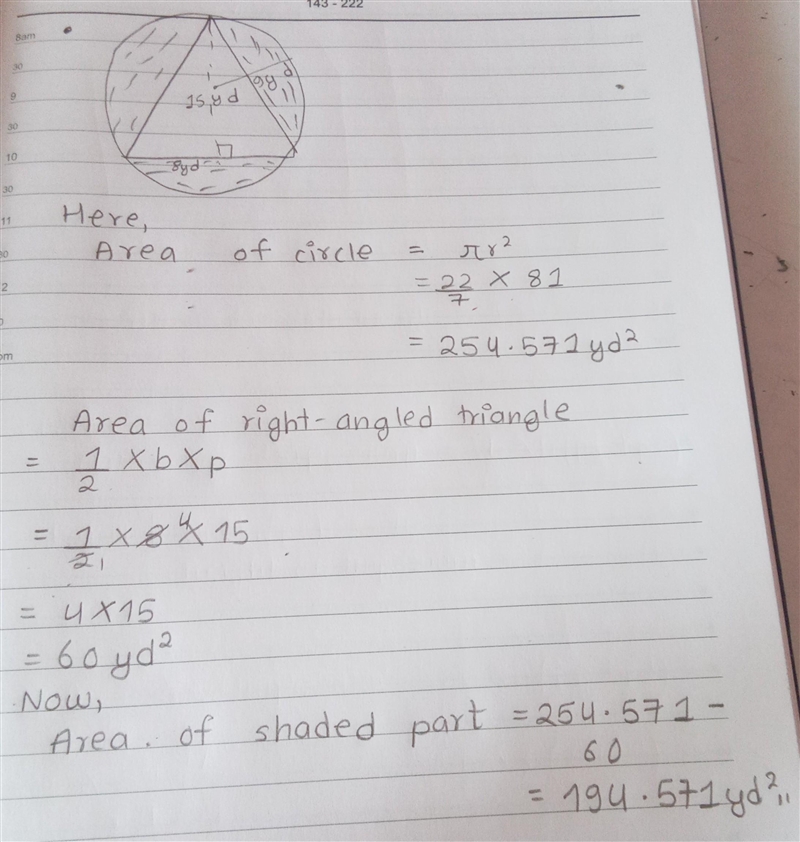 143 - 222
8am
30
9
30
10
30
11
15 yd
9 yd
8yd
Here,
Area of circle = πr²
= 22/7 × 81
= 254.571yd²
Area of right-angled triangle
= 1/2 × b × p
= 1/2 × 8 4 × 15
= 4 × 15
= 60 yd²
Now,
Area of shaded part = 254.571 -
60
= 194.571yd²,,